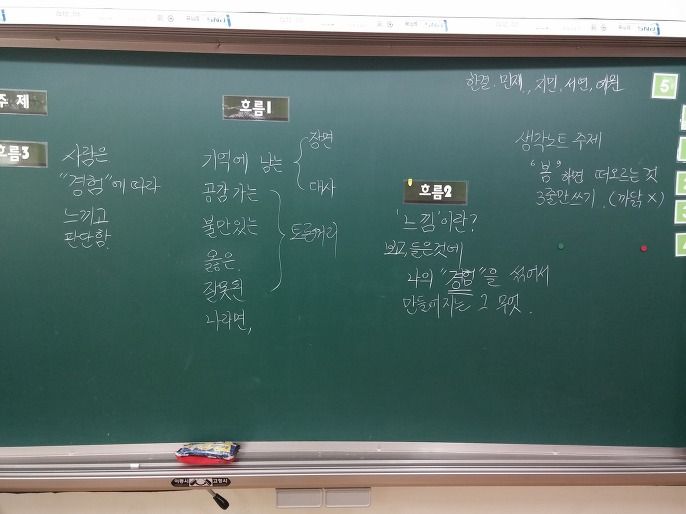 한결, 민재, 지민, 서연, 예원
5
주제
흐름1
생각노트 주제
"봄"하면 떠오르는 것
3줄만 쓰기. (까닭 X)
흐름3
사람은
"경험"에 따라
느끼고
판단함.
기억에 남는
장면
대사
공감가는
불만있는
옳은
잘못된
나라면,
토론거리
흐름2
'느낌'이란?
보고, 들은것에
나의 "경험"을 섞어서
만들어지는 그 무엇.